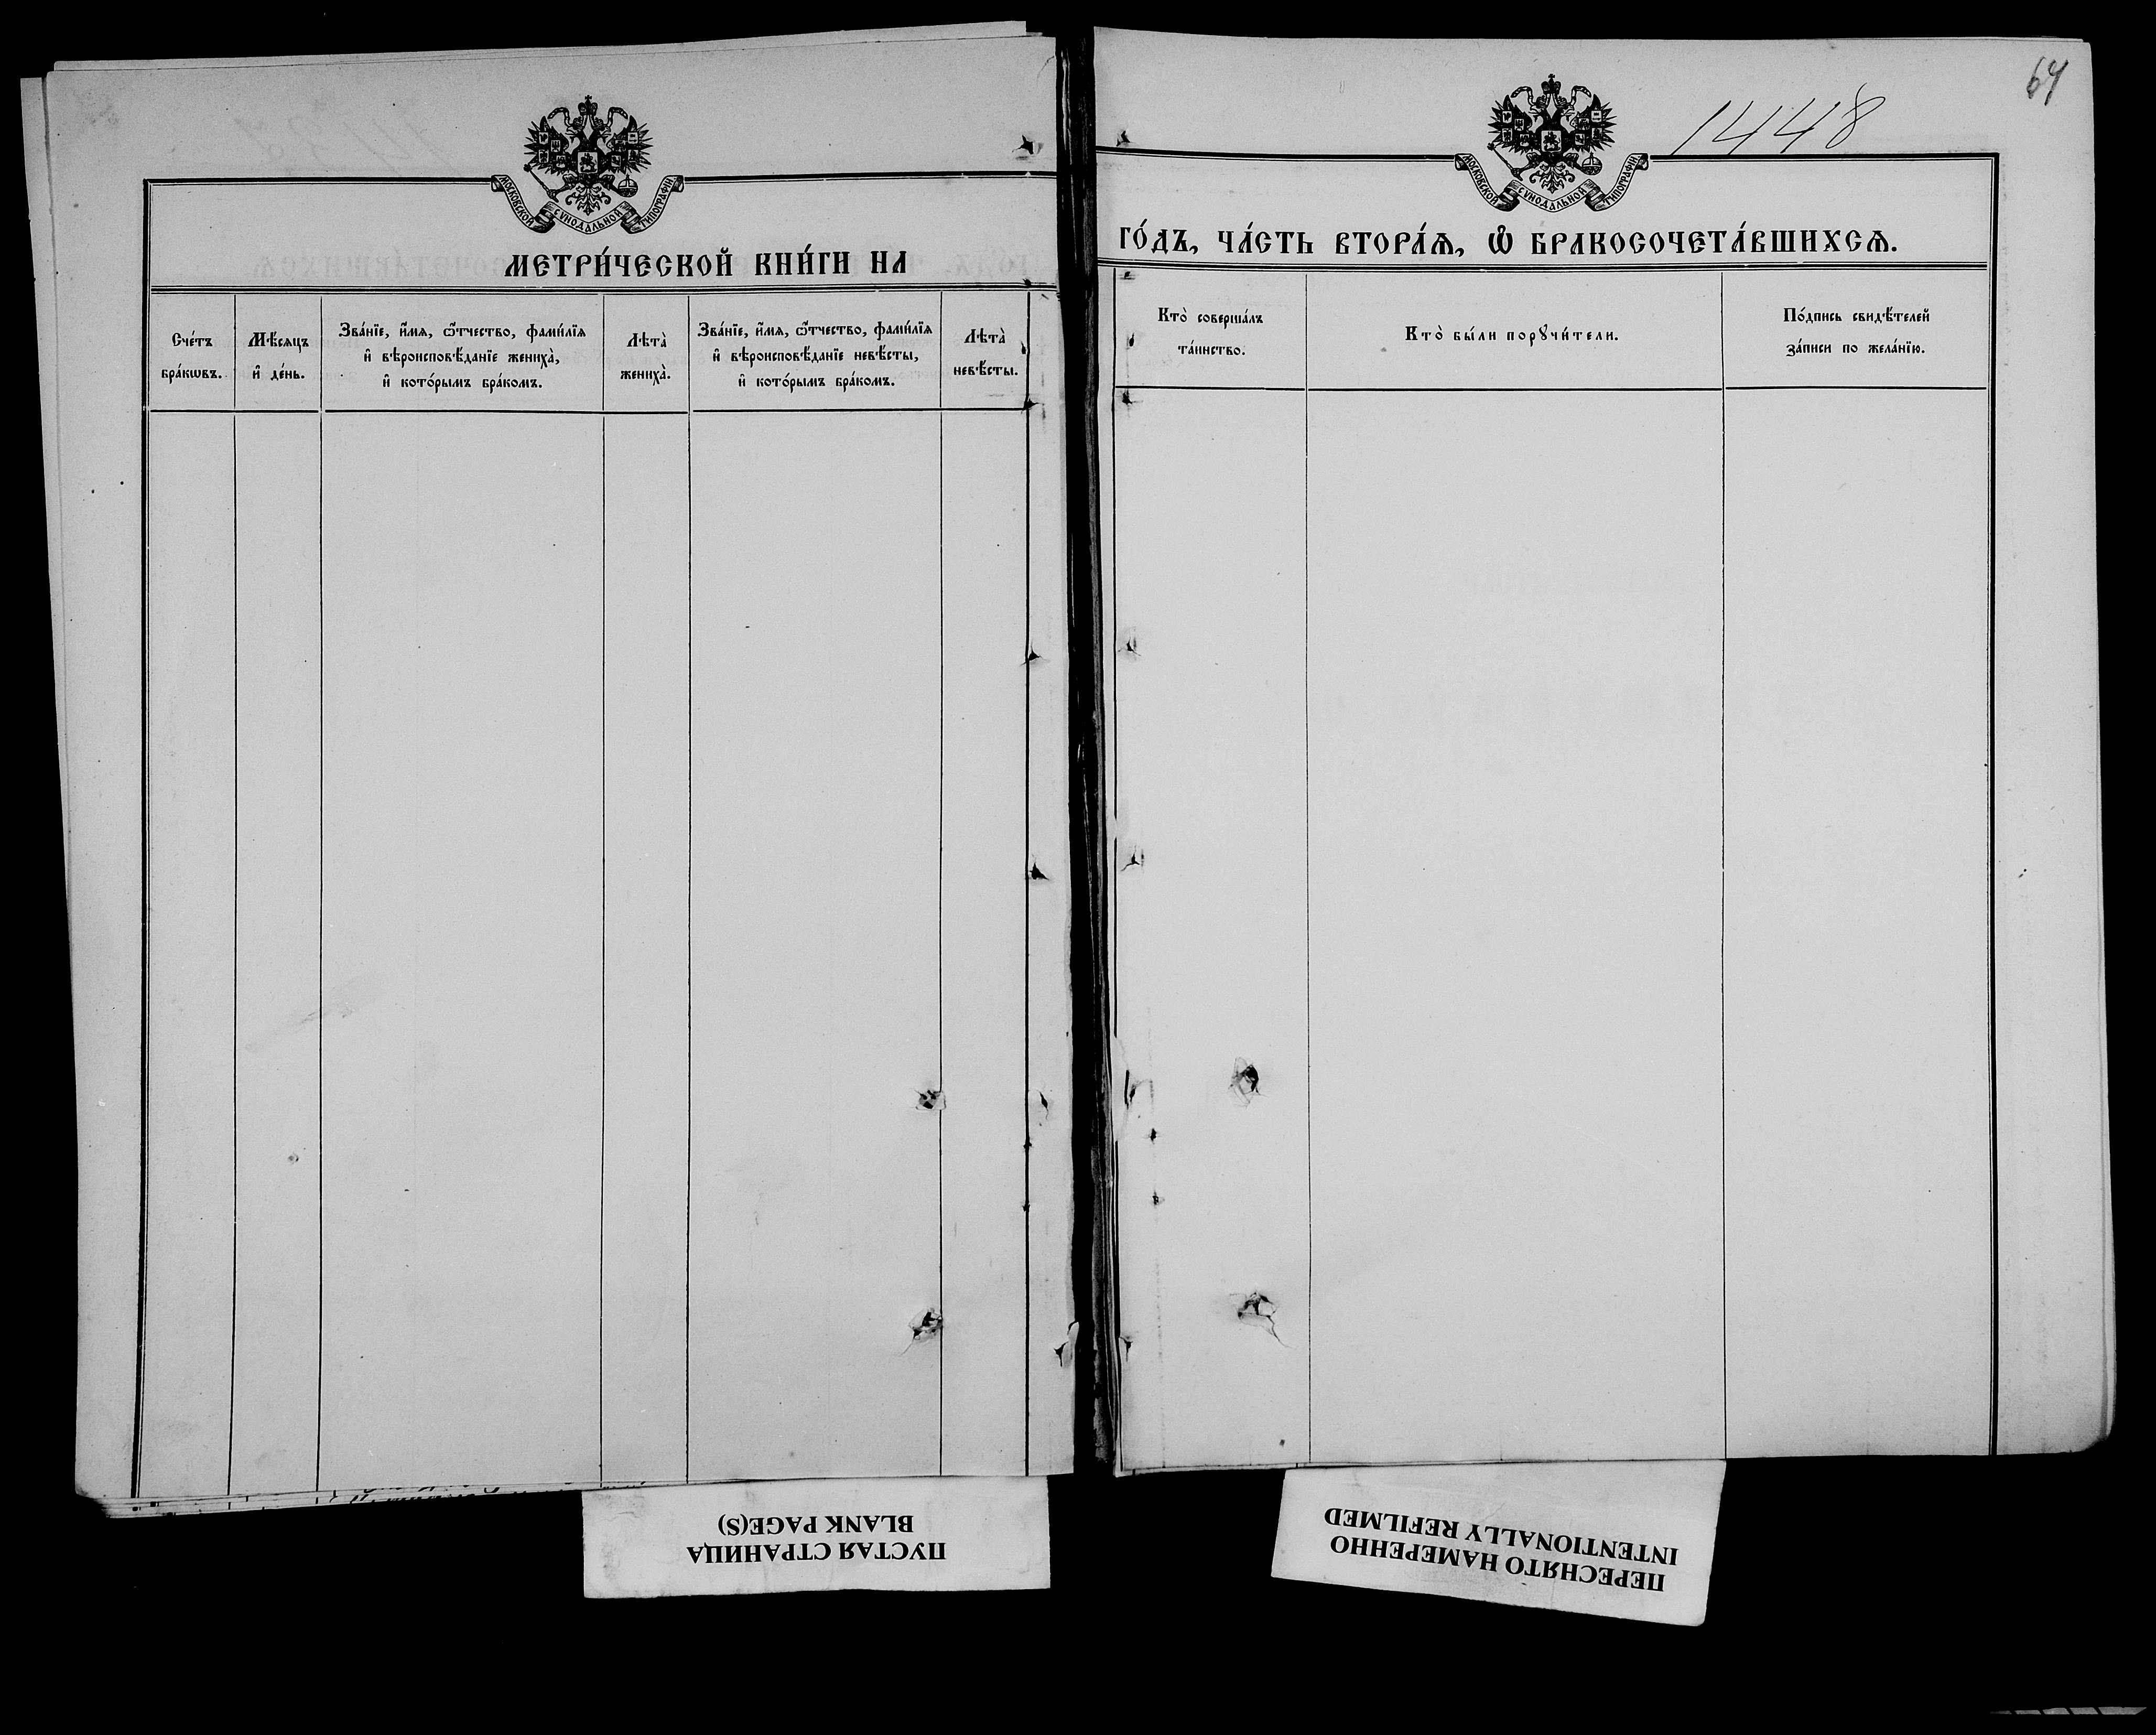 МОСКОВСКОЙ СѴНОДАЛЬНОЙ ТИПОГРАФІИ
МЕТРИ́ЧЕСКОЙ КНИ́ГИ НА
Сче́тъ
бра́кѡвъ.
Мѣ́сяцъ
и҆ де́нь.
Зва́нїе, и҆́мя, ѻ҆́тчество, фами́лїя
и҆ вѣроисповѣ́данїе жениха̀,
и҆ кото́рымъ бра́комъ.
Лѣта̀
жениха̀.
Зва́нїе, и҆́мя, ѻ҆́тчество, фами́лїя
и҆ вѣроисповѣ́данїе невѣ́сты,
и҆ кото́рымъ бра́комъ.
Лѣта̀
невѣ́сты.
64
1448
МОСКОВСКОЙ СѴНОДАЛЬНОЙ ТИПОГРАФІИ
ГО́ДЪ, ЧА́СТЬ ВТОРА́Ѧ, Ѡ҆ БРАКОСОЧЕТА́ВШИХСѦ.
Кто̀ соверша́лъ
та́инство.
Кто̀ бы́ли порꙋчи́тели.
По́дпись свидѣ́телей
за́писи по жела́нїю.
ПУСТАЯ СТРАНИЦА
BLANK PAGE(S)
ПЕРЕСНЯТО НАМЕРЕННО
INTENTIONALLY REFILMED